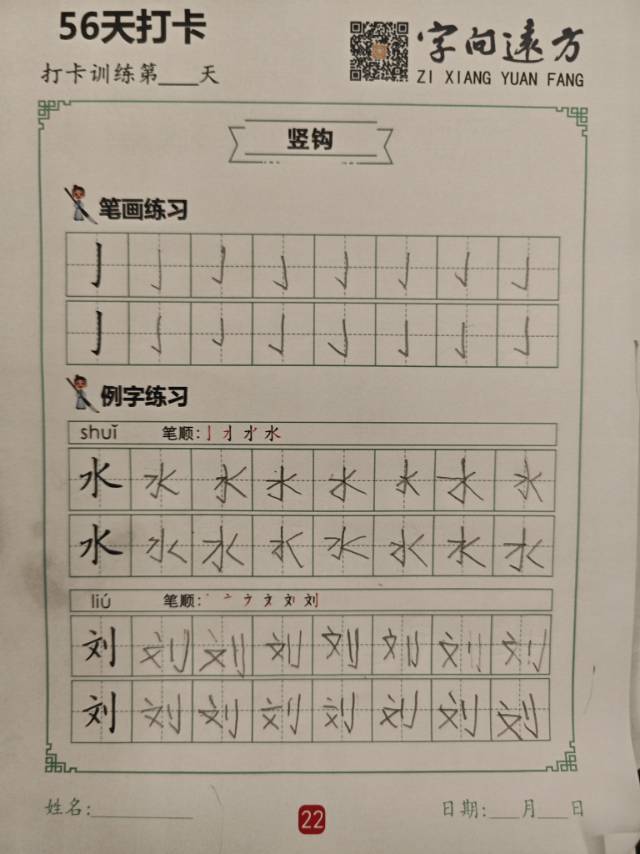 56天打卡
字向远方
打卡训练第___天
ZI XIANG YUAN FANG
竖钩
笔画练习
亅亅亅亅亅亅亅亅
亅亅亅亅亅亅亅亅
例字练习
shuǐ 笔顺:亅 水
水水水水水水水水
水水水水水水水水
liú 笔顺: 刘
刘刘刘刘刘刘刘刘
刘刘刘刘刘刘刘刘
姓名:__________ 22 日期:___月___日